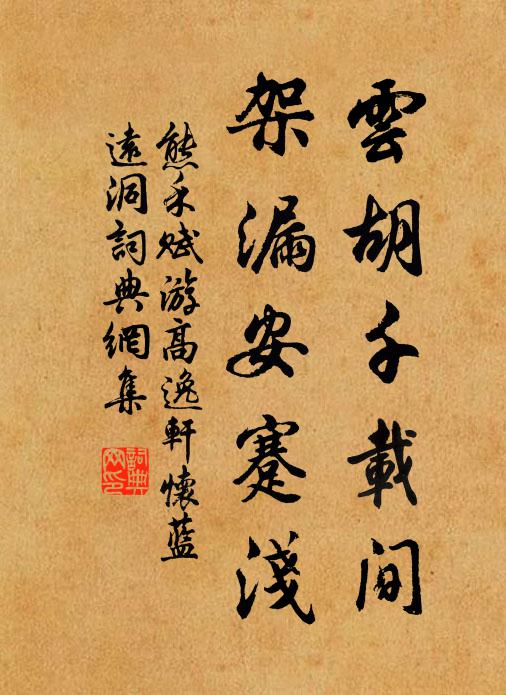 雲胡千載間
架漏安蹇淺
熊禾賦游高逸軒懷藍
遠洞詞典網集
詞典網印